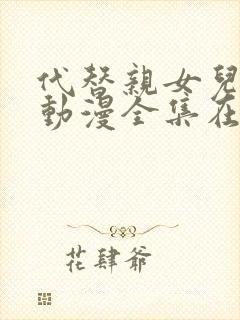 代替親女兒
動漫全集在
花肆爺